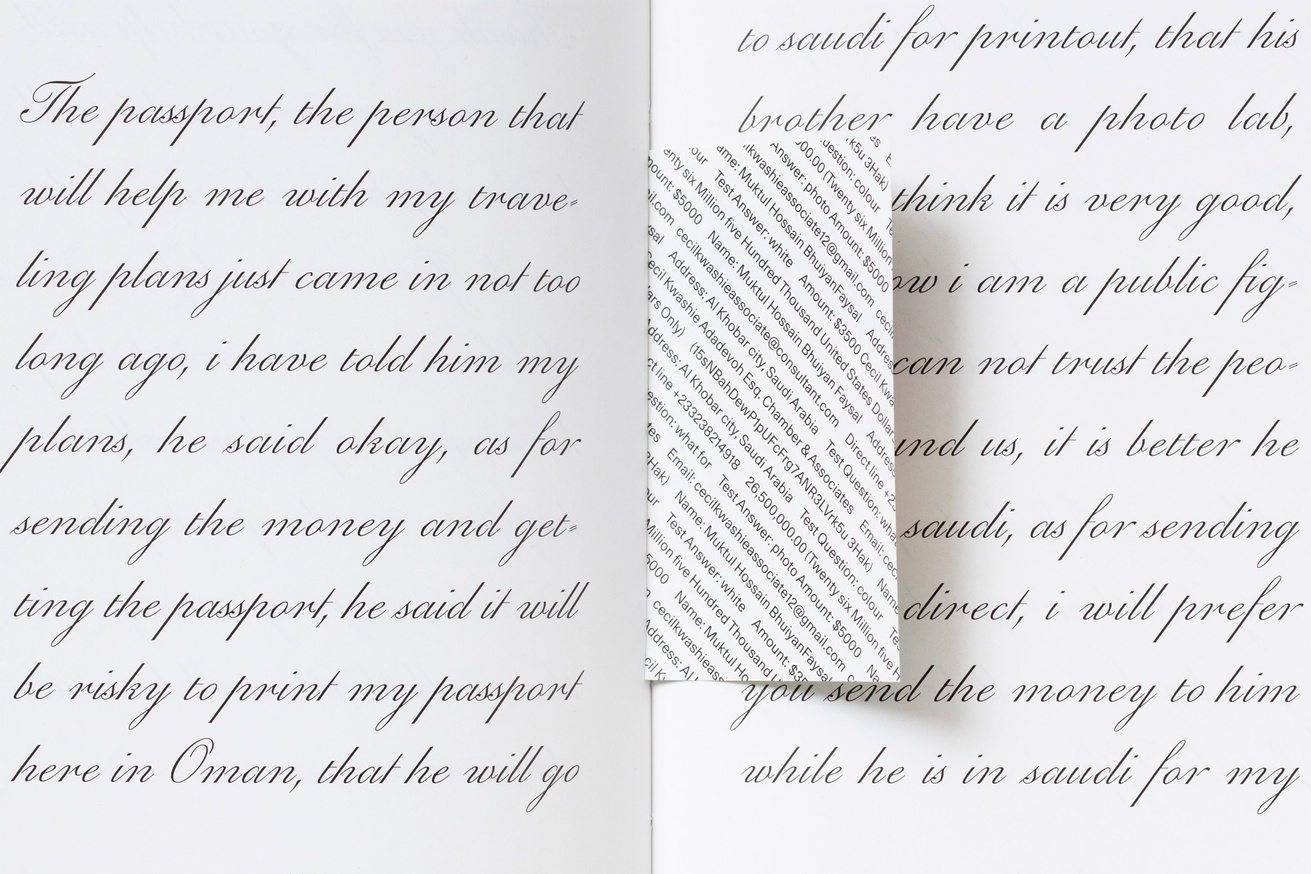 The passport, the person that
will help me with my trave-
ling plans just came in not too
long ago, i have told him my
plans, he said okay, as for
sending the money and get-
ting the passport, he said it will
be risky to print my passport
here in Oman, that he will go
to saudi for printout, that his
brother have a photo lab,
think it is very good,
ow i am a public fig-
can not trust the peo-
und us, it is better he
saudi, as for sending
direct, i will prefer
you send the money to him
while he is in saudi for my
es E
k5u 3Hak)
uestion: colour Te
00.00 (Twenty six Million
Answer: photo Amount: $5000
lkwashieassociate12@gmail.com cecil
ame: Muktul Hossain BhuiyanFaysal Address
our Test Answer: white Amount: $3500 Cecil Kwa
enty six Million five Hundred Thousand United States Dollar
ount: $5000 Name: Muktul Hossain Bhuiyan Faysal Address
il.com cecilkwashieassociate@consultant.com Direct line +2
sal Address: Al Khobar city, Saudi Arabia Test Question: wha
Cecil Kwashie Adadevoh Esq. Chamber & Associates Email: cec
ars Only) (15sNBahDewPtpUFcFrg7ANR3LVrk5u 3Hak) Name
ddress: Al Khobar city, Saudi Arabia Test Question: colour Te
ct line +233238214918 26,500,000.00 (Twenty six Million five
estion: what for Test Answer: photo Amount: $5000 Na
tes Email: cecilkwashieassociate12@gmail.com
3Hak) Name: Muktul Hossain BhuiyanFaysal
our Test Answer: white Amount: $35
Million five Hundred Thousand U
5000 Name: Muktul Ho
cecilkwashieass
Address: Al
cil K